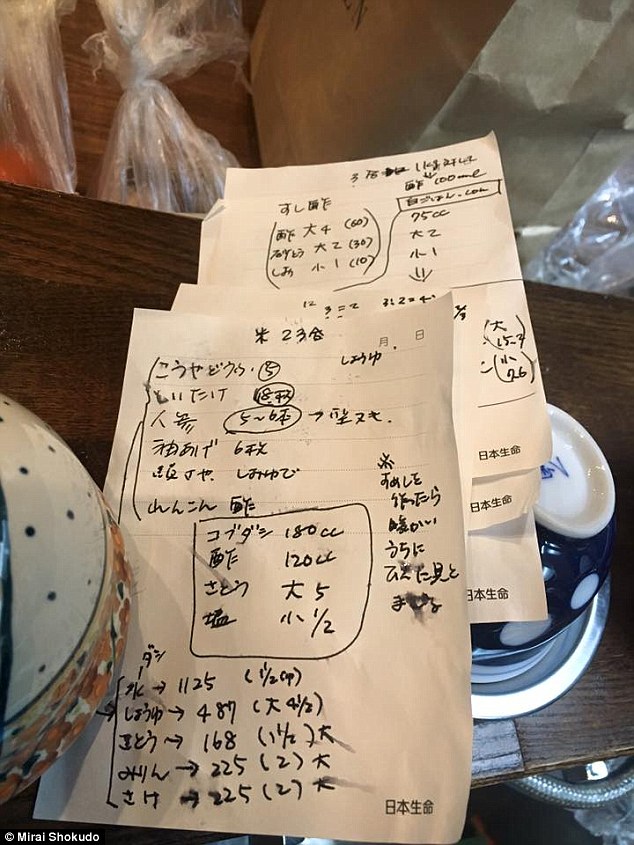 すし酢
酢 大4 (60)
さとう 大2 (30)
しお 小1 (10)
酢 100ml
白ごはん.com
75cc
大2
小1
日本生命
日本生命
日本生命
米 23合
月 日
こうやどうふ. ⑤
しょうゆ.
しいたけ
人参 5~6本
油あげ 6枚
しおゆで
れんこん 酢
コブダシ 180cc
酢 120cc
さとう 大5
塩 小1/2
※
すめしを
作ったら
暖かい
うちに
まぜる
ダシ
水→1125 (1/2
しょうゆ→487 (大4 1/2)
さとう→168 (1 1/2)大
みりん→225 (2)大
さけ→225 (2)大
日本生命
© Mirai Shokudo